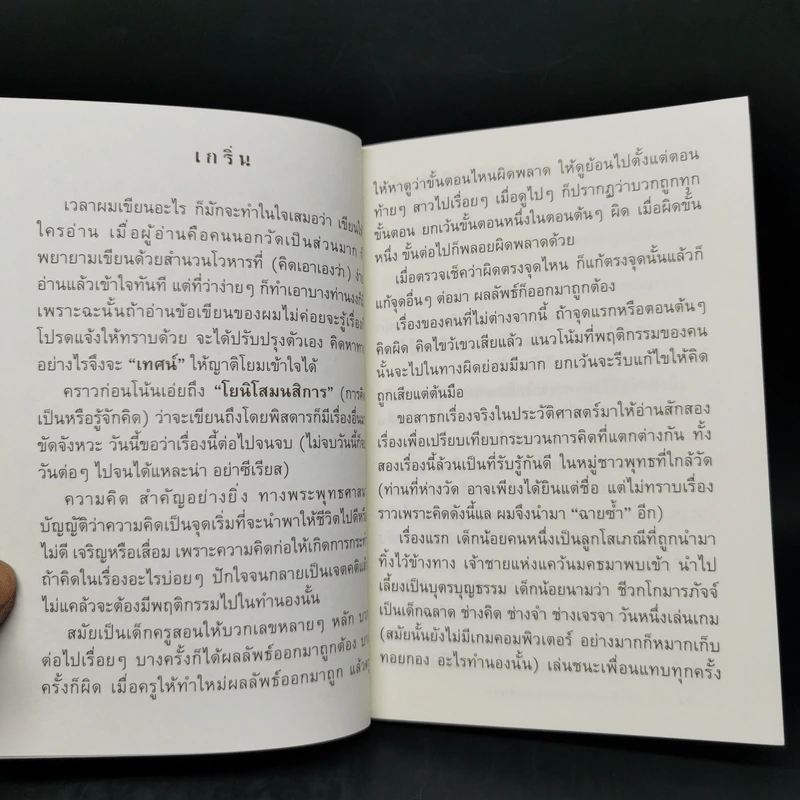 เกริ่น
เวลาผมเขียนอะไร ก็มักจะทำในใจเสมอว่า เขียนให้
ใครอ่าน เมื่อผู้อ่านคือคนนอกวัดเป็นส่วนมาก
พยายามเขียนด้วยสำนวนโวหารที่ (คิดเอาเองว่า)
อ่านแล้วเข้าใจทันที แต่ที่ว่าง่ายๆ ก็ทำเอาบางท่านงง
เพราะฉะนั้นถ้าอ่านข้อเขียนของผมไม่ค่อยจะรู้เรื่อง
โปรดแจ้งให้ทราบด้วย จะได้ปรับปรุงตัวเอง คิดหา
อย่างไรจึงจะ “เทศน์” ให้ญาติโยมเข้าใจได้
คราวก่อนโน้นเอ่ยถึง “โยนิโสมนสิการ”
เป็นหรือรู้จักคิด) ว่าจะเขียนถึงโดยพิสดารก็มีเรื่องอื่น
ขัดจังหวะ วันนี้ขอว่าเรื่องนี้ต่อไปจนจบ (ไม่จบวันนี้ก็
วันต่อๆ ไปจนได้แหละน่า อย่าซีเรียส)
ความคิด สำคัญอย่างยิ่ง ทางพระพุทธศาสน
บัญญัติว่าความคิดเป็นจุดเริ่มที่จะนำพาให้ชีวิตไปดี
ไม่ดี เจริญหรือเสื่อม เพราะความคิดก่อให้เกิดการกระ
ถ้าคิดในเรื่องอะไรบ่อยๆ ปักใจจนกลายเป็นเจตคติแล้ว
ไม่แคล้วจะต้องมีพฤติกรรมไปในทำนองนั้น
สมัยเป็นเด็กครูสอนให้บวกเลขหลายๆ หลัก บวก
ต่อไปเรื่อยๆ บางครั้งก็ได้ผลลัพธ์ออกมาถูกต้อง
ครั้งก็ผิด เมื่อครูให้ทำใหม่ผลลัพธ์ออกมาถูก แล้ว
ให้หาดูว่าขั้นตอนไหนผิดพลาด ให้ดูย้อนไปตั้งแต่ตอน
ท้ายๆ สาวไปเรื่อยๆ เมื่อดูไปๆ ก็ปรากฏว่าบวกถูกทุก
ขั้นตอน ยกเว้นขั้นตอนหนึ่งในตอนต้นๆ ผิด เมื่อผิดขั้น
หนึ่ง ขั้นต่อไปก็พลอยผิดพลาดด้วย
เมื่อตรวจเช็คว่าผิดตรงจุดไหน ก็แก้ตรงจุดนั้นแล้วก็
แก้จุดอื่นๆ ต่อมา ผลลัพธ์ก็ออกมาถูกต้อง
เรื่องของคนก็ไม่ต่างจากนี้ ถ้าจุดแรกหรือตอนต้นๆ
คิดผิด คิดไขว้เขวเสียแล้ว แนวโน้มที่พฤติกรรมของคน
นั้นจะไปในทางผิดย่อมมีมาก ยกเว้นจะรีบแก้ไขให้คิด
ถูกเสียแต่ต้นมือ
ขอสาธกเรื่องจริงในประวัติศาสตร์มาให้อ่านสักสอง
เรื่องเพื่อเปรียบเทียบกระบวนการคิดที่แตกต่างกัน ทั้ง
สองเรื่องนี้ล้วนเป็นที่รับรู้กันดี ในหมู่ชาวพุทธที่ใกล้วัด
(ท่านที่ห่างวัด อาจเพียงได้ยินแต่ชื่อ แต่ไม่ทราบเรื่อง
ราวเพราะคิดดังนี้แล ผมจึงนำมา “ฉายซ้ำ” อีก)
เรื่องแรก เด็กน้อยคนหนึ่งเป็นลูกโสเภณีที่ถูกนำมา
ทิ้งไว้ข้างทาง เจ้าชายแห่งแคว้นมคธมาพบเข้า นำไป
เลี้ยงเป็นบุตรบุญธรรม เด็กน้อยนามว่า ชีวกโกมารภัจจ์
เป็นเด็กฉลาด ช่างคิด ช่างจำ ช่างเจรจา วันหนึ่งเล่นเกม
(สมัยนั้นยังไม่มีเกมคอมพิวเตอร์ อย่างมากก็หมากเก็บ
ทอยกอง อะไรทำนองนั้น) เล่นชนะเพื่อนแทบทุกครั้ง